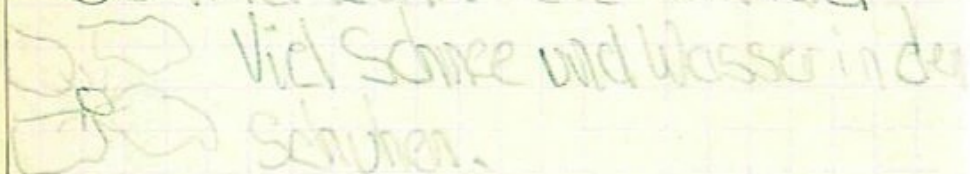 Viel Schnee und Wasser in den
Schuhen.